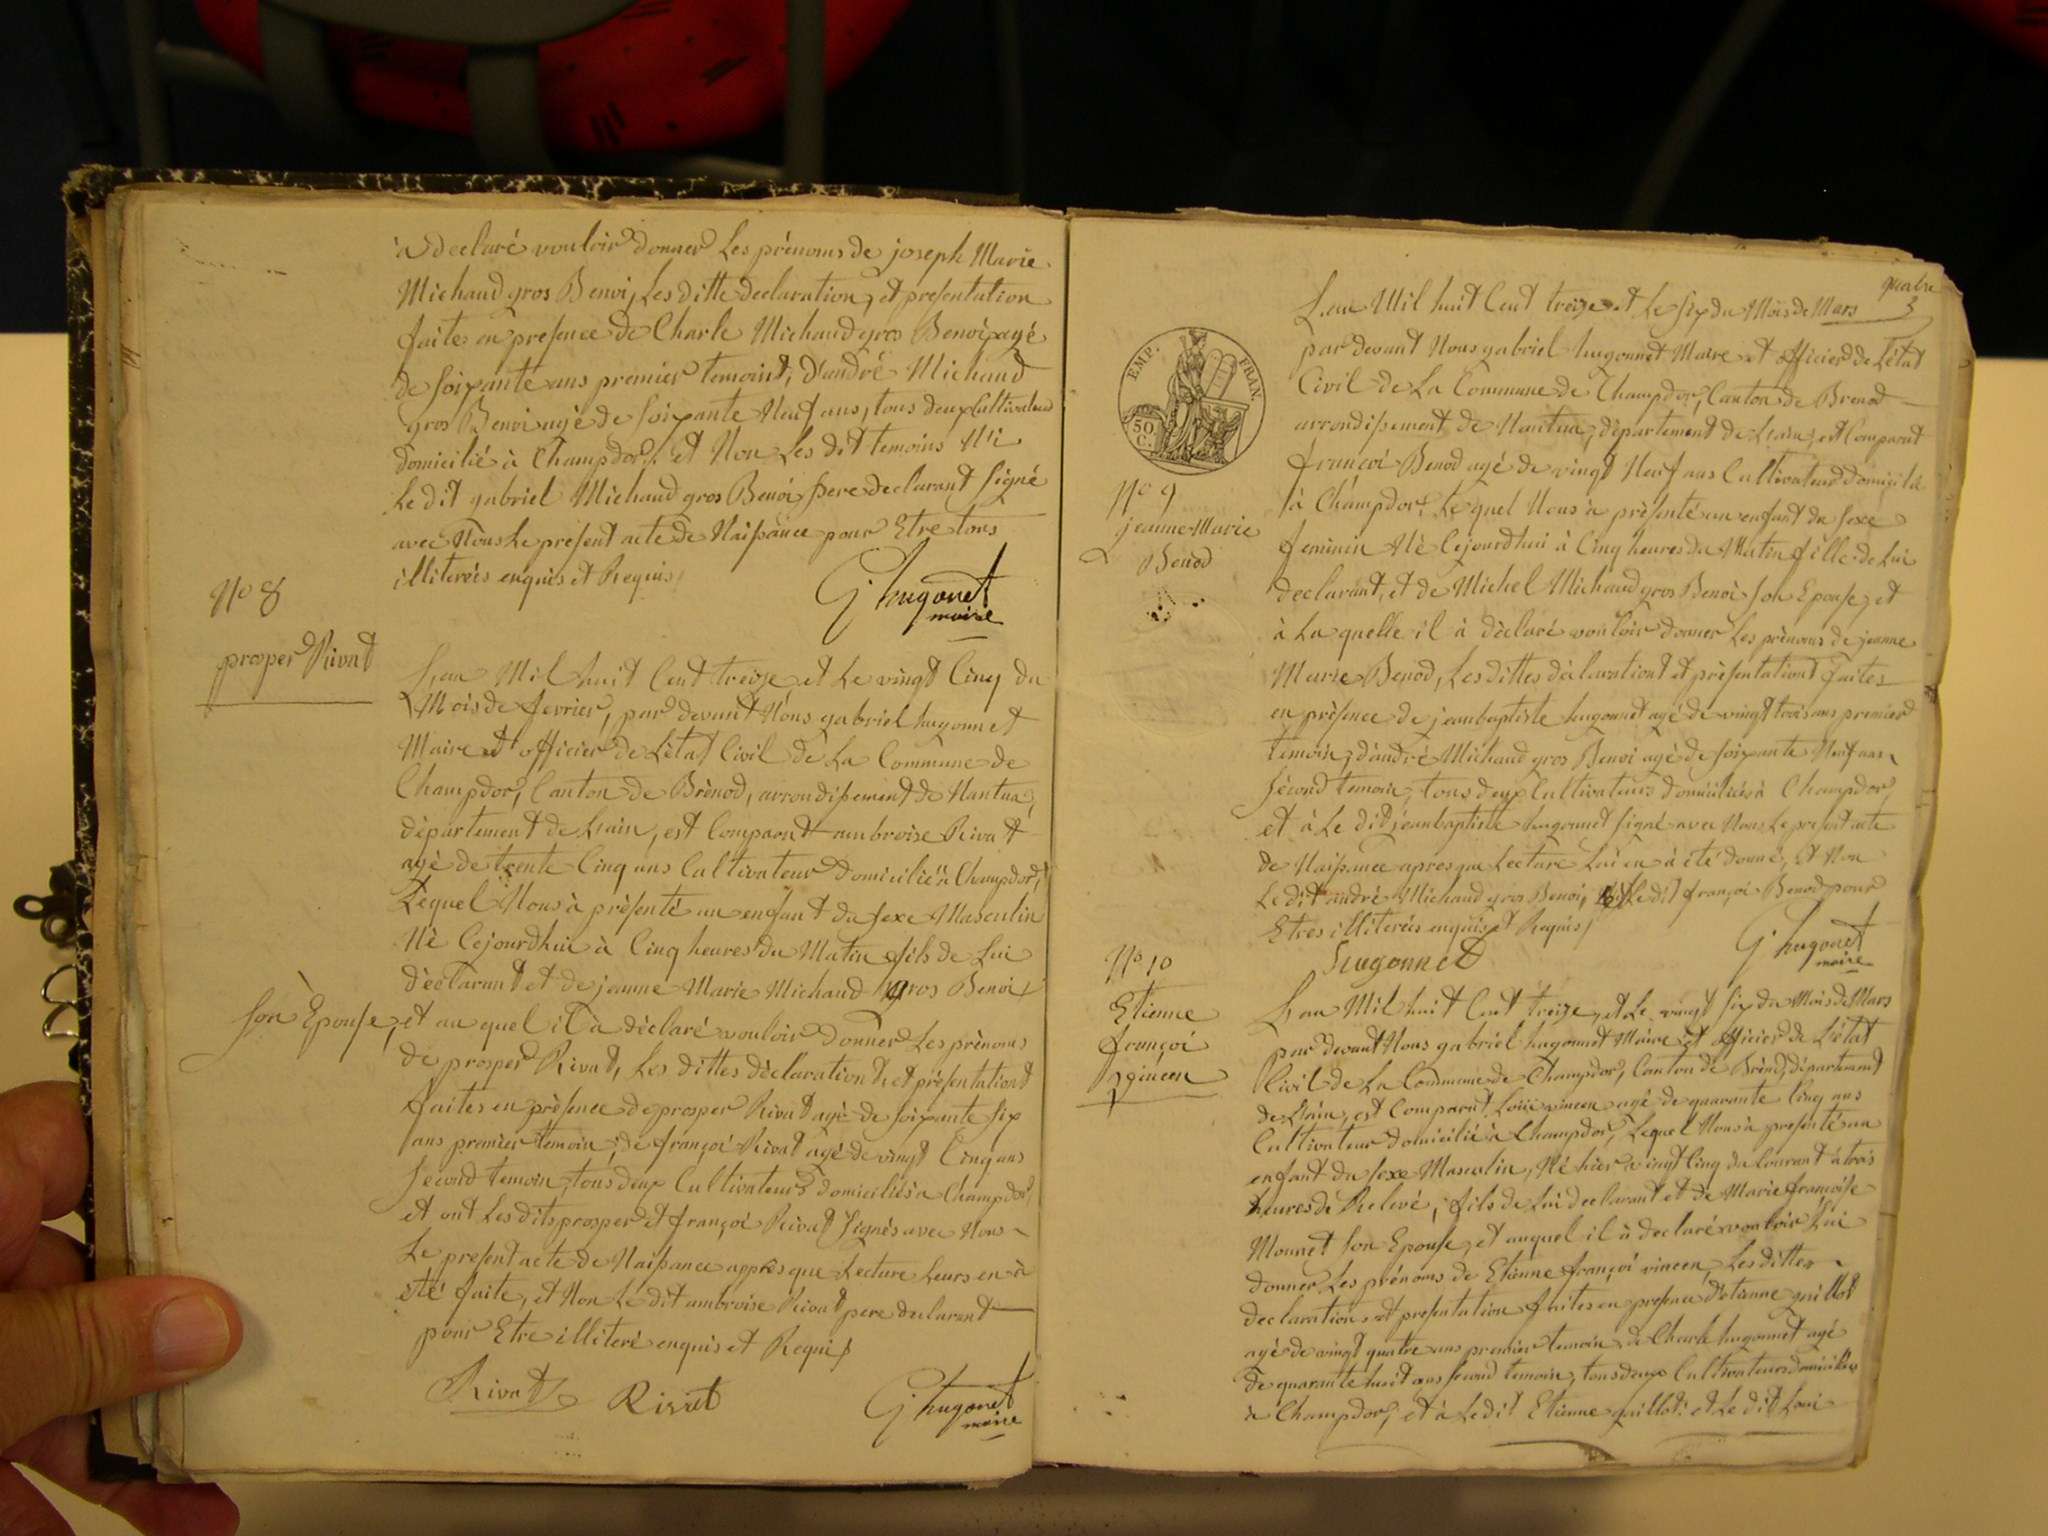 à declaré vouloir donner Les prénoms de joseph Marie
Michaud gros Benoi, Les ditte declaration, et presentation
faites en presence de Charle Michaud gros Benoi agé
de soixante ans premier temoint, d'andré Michaud
gros Benoi agé de soixante Neuf ans, tous deux Cultivateurs
domicilié à Champdor, et Non Les dit temoins Ni
Le dit gabriel Michaud gros Benoi pere declarant signé
avec Nous Le present acte de Naissance pour Etre tous
illiterés enquis et Requis
G hugonet
maire
No 8
prosper Rivat
L'an Mil huit Cent treize et Le vingt Cinq du
Mois de fevrier, par devant Nous gabriel hugonnet
Maire et officier de L'état Civil de La Commune de
Champdor, Canton de Brénod, arrondissement de Nantua,
département de L'ain, est Comparut ambroise Rivat
agé de trente Cinq ans Cultivateur domicilié à Champdor,
Lequel Nous à présenté un enfant du sexe Masculin
Né Cejourdhui à Cinq heures du Matin fils de Lui
déclarant et de jeanne Marie Michaud gros Benoi
son Epouse, et au quel il à déclaré vouloir donner Les prénoms
de prosper Rivat, Les dittes déclarationt, et présentationt
faites en présence de prosper Rivat agé de soixante six
ans premier temoin, de françoi Rivat agé de vingt Cinq ans
second temoin, tous deux Cultivateurs domiciliés à Champdor,
et ont Les dits prosper et françoi Rivat signés avec Nous
Le present acte de Naissance après que Lecture Leurs en à
été faite, et Non Le dit ambroise Rivat pere declarant
pour Etre illiteré enquis et Requis
Rivat Rivat G hugonet
maire
quatre
3
EMP. FRAN.
50 C.
L'an Mil huit Cent treize et Le six du Mois de Mars
par devant Nous gabriel hugonnet Maire et officier de L'état
Civil de La Commune de Champdor, Canton de Brenod
arrondissement de Nantua, département de L'ain, est Comparut
françoi Benod agé de vingt Neuf ans Cultivateur domicilié
à Champdor, Le quel Nous à présenté un enfant du sexe
feminin Né Cejourdhui à Cinq heures du Matin fille de Lui
declarant, et de Michel Michaud gros Benoi son Epouse, et
à La quelle il à déclaré vouloir donner Les prénoms de jeanne
Marie Benod, Les dittes déclarationt et présentationt faites
en présence de jean baptiste hugonnet agé de vingt trois ans premier
temoin, d'andré Michaud gros Benoi agé de soixante Neuf ans
sécond temoin, tous deux Cultivateurs domiciliés à Champdor,
et à Le dit jean baptiste hugonnet signé avec Nous Le present acte
de Naissance apres que Lecture Lui en à été donné, Et Non
Le dit andré Michaud gros Benoi, Le dit françoi Benod pour
Etres illiterés enquis et Requis
No 9
jeanne Marie
Benod
hugonnet
G hugonet
maire
No 10
Etienne
françoi
vincen
L'an Mil huit Cent treize, et Le vingt six du Mois de Mars
par devant Nous gabriel hugonnet Maire et officier de L'état
Civil de La Commune de Champdor, Canton de Brénod, département
de L'ain, est Comparut Loui vincen agé de quarante Cinq ans
Cultivateur domicilié à Champdor, Lequel Nous à presenté un
enfant du sexe Masculin, Né hier vingt Cinq du Courant à trois
heures de Relevé, fils de Lui declarant et de Marie françoise
Mounet son Epouse, et auquel il à declaré vouloir Lui
donner Les prénoms de Etienne françoi vincen, Les dittes
declarations et presentation faites en presence d'etienne guillot
agé de vingt quatre ans premier temoin, de Charle hugonnet agé
de quarante huit ans second temoin, tous deux Cultivateurs domiciliés
à Champdor, et à Le dit Etienne guillot, et Le dit Loui